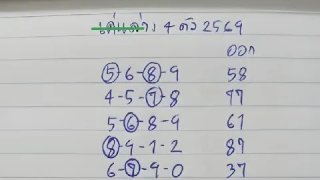 เด่นล่าง 4 ตัว 2569
ออก
5-6-8-9 58
4-5-7-8 77
5-6-8-9 61
8-9-1-2 87
6-7-9-0 37